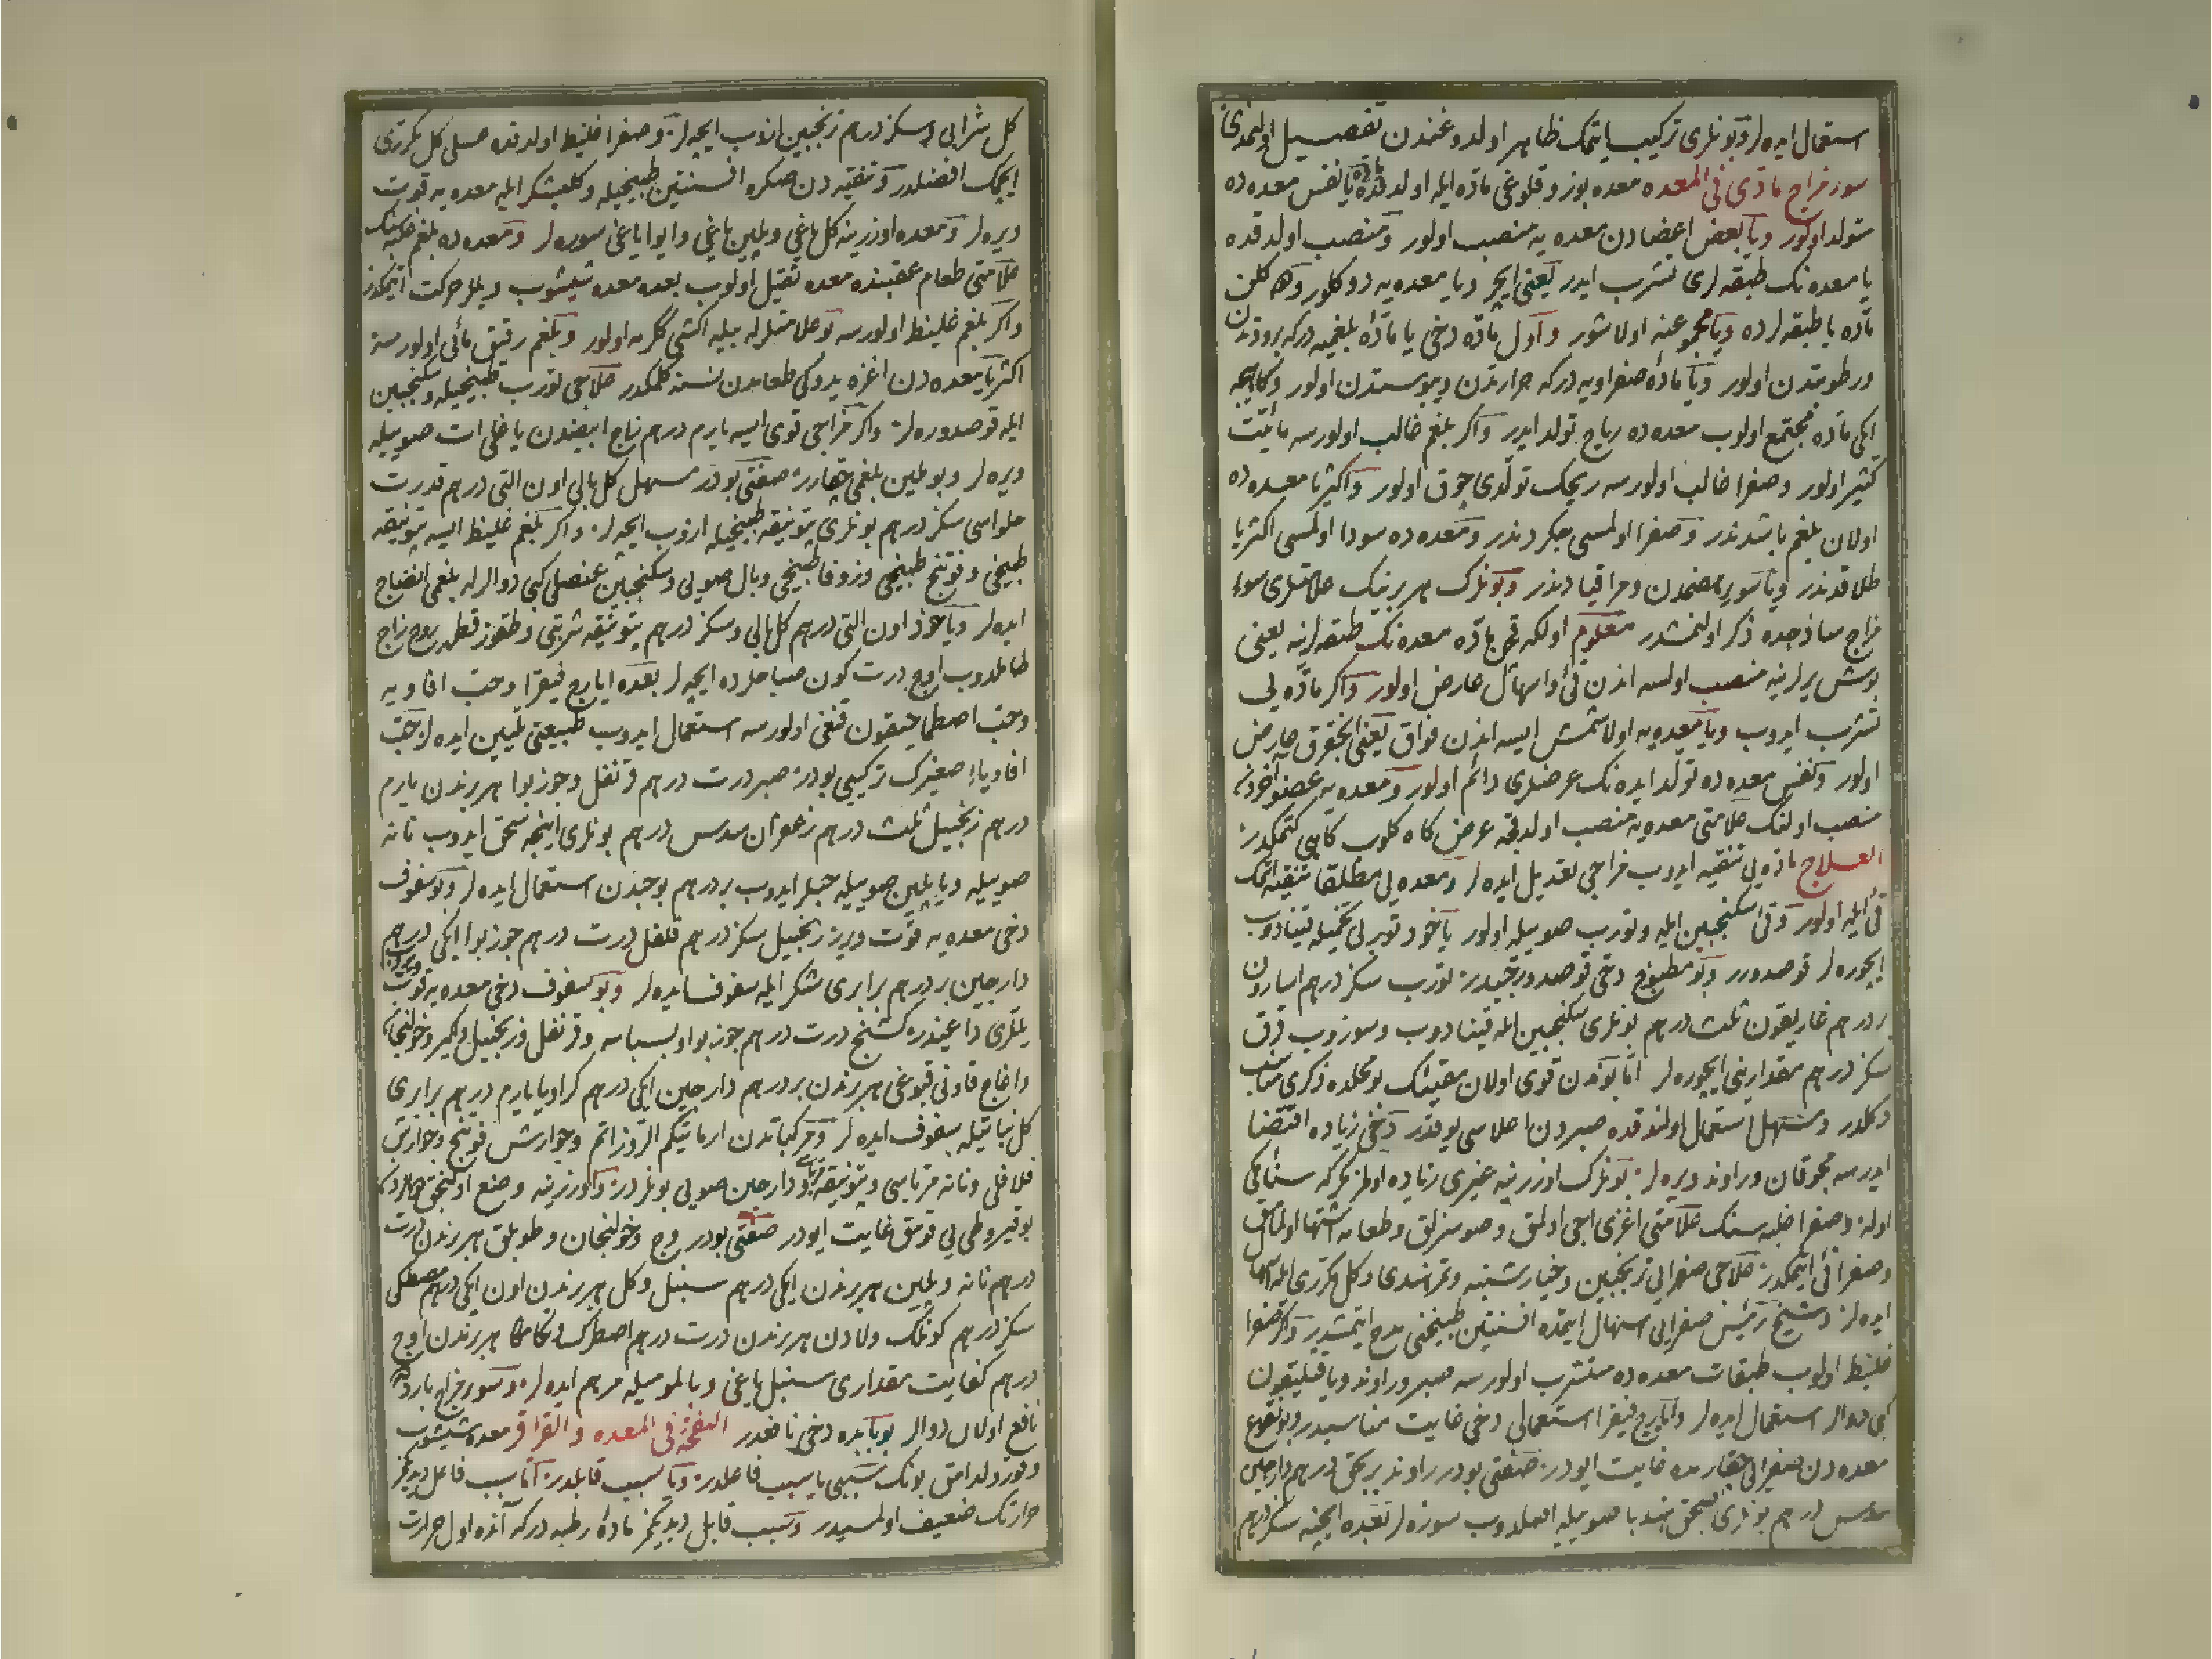 استعمال ايده لر و بونلرى تركيب ايتمك ظاهر اولدوغندن تفصيل اولنمدى
سوء مزاج مادى فى المعده معده بوزوقلوغى ماده ايله اولدقده ماده يا نفس معده ده
متولد اولور ويا بعض اعضادن معده يه منصب اولور و منصب اولدقده
يا معده نك طبقه لرى تشرب ايدر يعنى ايچر ويا معده يه دوكلور و كلن
ماده يا طبقه لرده ويا مجموعنه اولاشور و اول ماده دخى يا ماده بلغميه دركه برودتدن
و رطوبتدن اولور ويا ماده صفراويه دركه حرارتدن و يبوستدن اولور و كاهيجه
ايكى ماده مجتمع اولوب معده ده رياح تولد ايدر و اكر بلغم غالب اولورسه مائيت
كثير اولور و صفرا غالب اولورسه ريحك تولدى چوق اولور و اكثريا معده ده
اولان بلغم باشدندر و صفرا اولمسى جكردندر و معده ده سودا اولمسى اكثريا
طلاقدندر ويا سوء هضمدن و مراقيادندر و بونلرك هر برينك علامتلرى سوء
مزاج ساذجده ذكر اولنمشدر معلوم اولكه قچن ماده معده نك طبقه لرينه يعنى
بوش يرلرينه منصب اولسه اندن قئ و اسهال عارض اولور و اكر ماده يى
تشرب ايدوب ويا معده يه اولاشمش ايسه اندن فواق يعنى انجقرق عارض
اولور و نفس معده ده تولد ايده نك عرضلرى دائم اولور و معده يه عضو آخردن
منصب اولنك علامتى معده يه منصب اولدقچه عرض كاه كلوب كاهى كتمكدر
العلاج ماده يى تنقيه ايدوب مزاجى تعديل ايده لر و معده يى مطلقا تنقيه ايتمك
قئ ايله اولور و قئ سكنجبين ايله و تورب صوييله اولور ياخود تورب تخميله قينادوب
ايچوره لر قوصدورر و بو مطبوخ دخى قوصدورجيدر تورب سكز درهم اسارون
بر درهم غاريقون ثلث درهم بونلرى سكنجبين ايله قينادوب و سوزوب قرق
سكز درهم مقدارينى ايچوره لر اما بوندن قوى اولان مقيئك بو محلده ذكرى مناسب
دكلدر و مسهل استعمال اولندقده صبردن اعلاسى يوقدر دخى زياده اقتضا
ايدرسه محموده و راوند ويره لر بونلرك اوزرينه غيرى زياده اولمز مكر كه سناء مكى
اوله و صفرا غلبه سنك علامتى اغزى اجى اولمق و صوسزلق و طعامه اشتها اولمامق
و صفرا قئ ايتمكدر علاجى صفرايى ترنجبين و خيارشنبه و تمر هندى و كل مكررى ايله اسهال
ايده لر و شيخ رئيس صفرايى اسهال ايتمده افسنتين طبيخنى مدح ايتمشدر و اكر صفرا
غليظ اولوب طبقات معده ده متشرب اولورسه صبر و راوند ويا فيليقون
كبى دوالر استعمال ايده لر و ايارج فيقرا استعمالى دخى غايت مناسبدر و بو نقوع
معده دن صفرايى چقارمده غايت ايودر صفتى بودر راوند بر بچق درهم دارچين
سدس درهم بونلرى سحق هندبا صوييله اصلدوب سوزه لر بعده ايچنه سكز درهم
كل شرابى و سكز درهم ترنجبين ازوب ايچه لر و صفرا غليظ اولدقده عسلى كل مكررى
ايچمك افضلدر و تنقيه دن صكره افسنتين طبيخيله و كلبشكر ايله معده يه قوت
ويره لر و معده اوزرينه كل ياغى و پلين ياغى و ايوا ياغى سوره لر و معده ده بلغم غلبه سنك
علامتى طعام عقبنده معده ثقيل اولوب بعده معده شيشوب و يللر حركت ايتمكدر
و اكر بلغم غليظ اولورسه بو علامتلرله بيله اكشى ككرمه اولور و بلغم رقيق مائى اولورسه
اكثريا معده دن اغزه يدوكى طعامدن نسنه كلمكدر علاجى تورب طبيخيله و سكنجبين
ايله قوصدوره لر و اكر مزاجى قوى ايسه يارم درهم زاج ابيضدن يا ات صوييله
ويره لر و بو ملين بلغمى چقارر صفتى بودر مسهل كل بالى اون التى درهم قدرت
حلواسى سكز درهم بونلرى پتونيقه طبيخيله ازوب ايچه لر و اكر بلغم غليظ ايسه پتونيقه
طبيخى و فوتنج طبيخى و زوفا طبيخى و بال صويى و سكنجبين عنصلى كبى دوالرله بلغمى انضاج
ايده لر ويا خود اون التى درهم كل بالى و سكز درهم پتونيقه شربتى و طقوز قطره روح زاج
طاملدوب اوچ درت كون صباحلرده ايچه لر بعده ايارج فيقرا و حب افاويه
و حب اصطماخيقون قنغى اولورسه استعمال ايدوب طبيعتى تليين ايده لر حب
افاويه صغيرك تركيبى بودر صبر درت درهم قرنفل و جوز بوا هر برندن يارم
درهم زنجبيل ثلث درهم زعفران سدس درهم بونلرى اينجه سحق ايدوب نانه
صوييله ويا پلين صوييله حبلر ايدوب بر درهم بو حبدن استعمال ايده لر و بو سفوف
دخى معده يه قوت ويرر زنجبيل سكز درهم فلفل درت درهم جوز بوا ايكى درهم
دارچين بر درهم برابرى شكر ايله سفوف ايده لر و بو سفوف دخى معده يه قوت ويروب
يللرى داغيدر كشنج درت درهم جوز بوا و بسباسه و قرنفل و زنجبيل و و خولنجان
و اغاج قاونى قبوغى هر برندن بر درهم دارچين ايكى درهم كراويا يارم درهم برابرى
كل نباتيله سفوف ايده لر و مركباتدن ارماتيكم الروزاتم و جوارش فوتنج و جوارش
فلافلى و نانه مرباسى و پتونيقه مرباسى و دارچين صويى بونلردر و اوزرينه وضع اولنجق
بو قيروطى يى قومق غايت ايودر صفتى بودر وج و خولنجان و طوپلق هر برندن درت
درهم نانه و پلين هر برندن ايكى درهم سنبل و كل هر برندن اون ايكى درهم مصطكى
سكز درهم كونلك و لادن هر برندن درت درهم اصطرك و هر برندن اوچ
درهم كفايت مقدارى سنبل ياغى و بالموميله مرهم ايده لر و سوء مزاج بارده
نافع اولان دوالر بو بابده دخى نافعدر النفخه فى المعده و القراقر معده شيشوب
و قورولدامق بونك سببى يا سبب فاعلدر ويا سبب قابلدر اما سبب فاعل ديديكمز
حرارتك ضعيف اولمسيدر و سبب قابل ديديكمز ماده رطبه دركه آنده اول حرارت